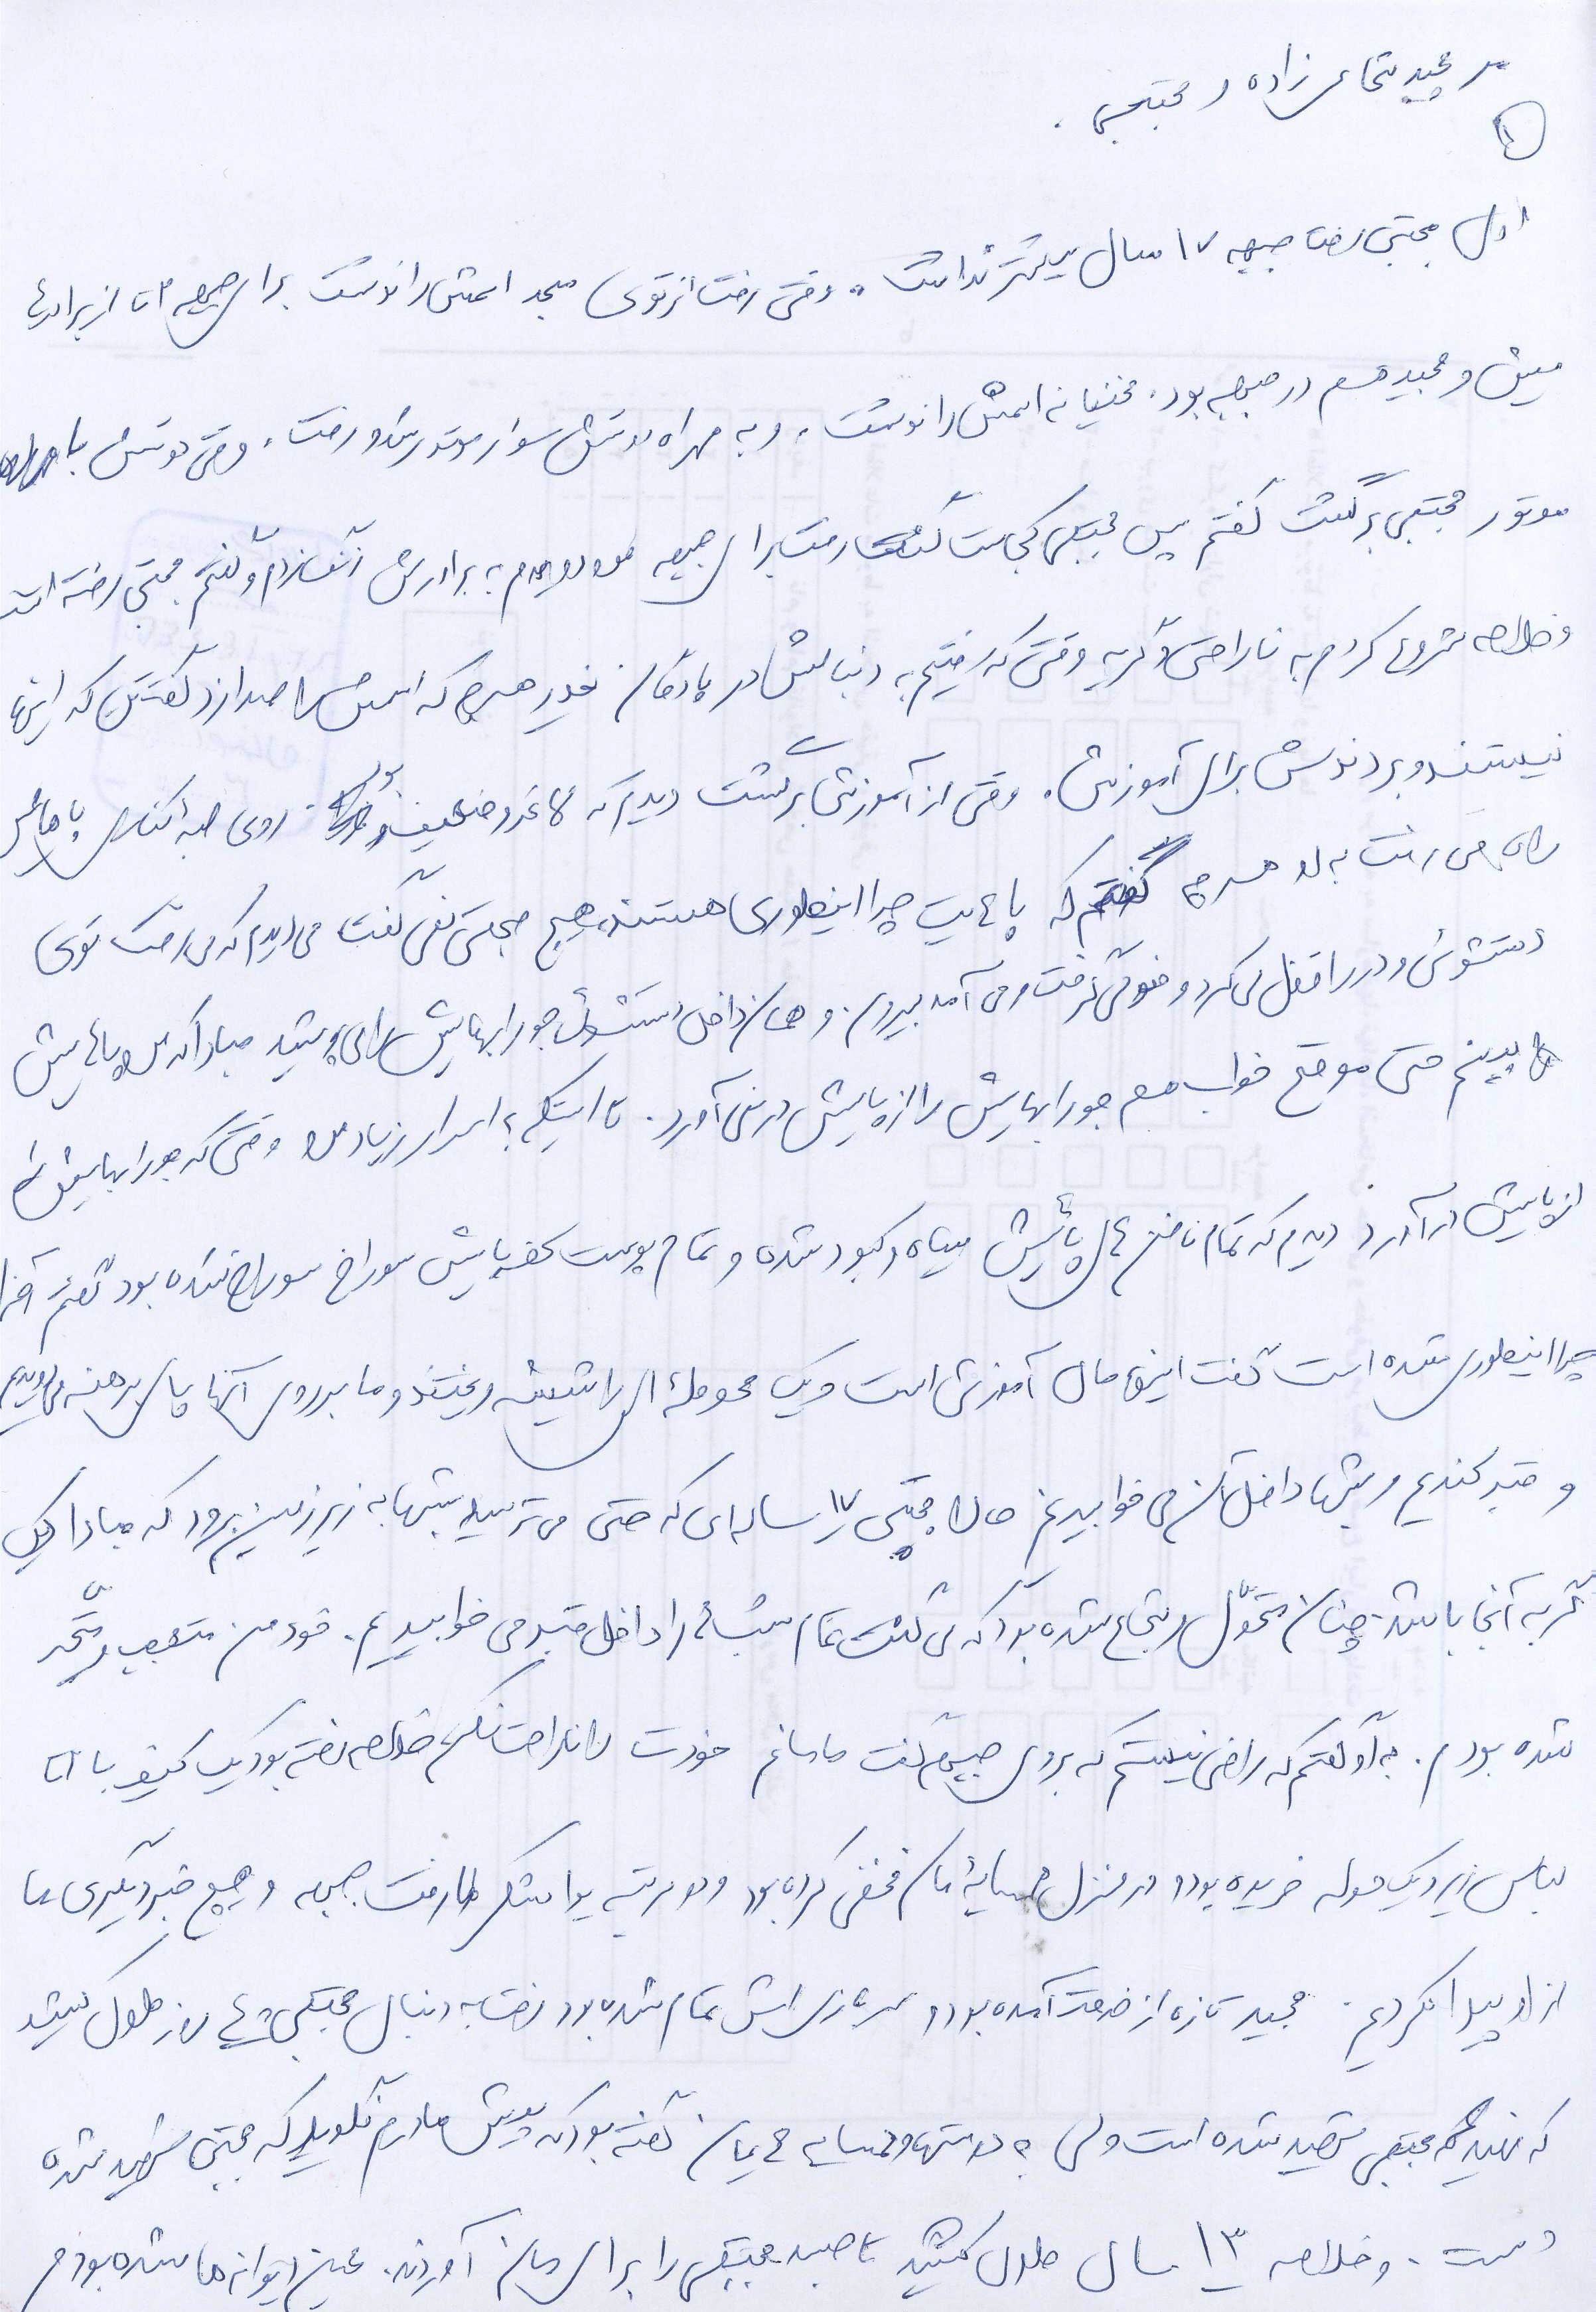 مجید شجاعی زاده و مجتبی.
۱
اول مجتبی رفت جبهه ۱۷ سال بیشتر نداشت. وقتی رفت از توی مسجد اسمش را نوشت برای جبهه ۲ تا از برادرها
و مجید هم در جبهه بود. مخفیانه اسمش را نوشت. و به همراه دوستش سوار موتور شد و رفت. وقتی دوستش با
موتور مجتبی برگشت گفتم پس مجتبی کجاست گفت رفت برای جبهه به برادرش زنگ زدم و گفتم مجتبی رفته است
و خلاصه شروع کردم به ناراحتی و گریه وقتی که رفتیم به دنبالش در پادگان هرچه که اسمش را صدا زد گفتش که اینها
نیستند و بردندش برای آموزش. وقتی از آموزش برگشت دیدم که لاغر و ضعیف بود. روی پاهایش
راه می رفت به او هرچه گفتم که پاهایت چرا اینطوری هستند هیچ نمی گفت می دیدم که می رفت توی
دستشوئی و در را قفل می کرد و وضو می گرفت و می آمد بیرون. و همان داخل دستشوئی جورابهایش را می پوشید مبادا که من پاهایش
را ببینم حتی موقع خواب هم جورابهایش را از پایش در نمی آورد. تا اینکه به اسرار زیاد من وقتی که جورابهایش را
از پایش در آورد دیدم که تمام ناخن های پایش سیاه و کبود شده و تمام پوست کف پایش سوراخ سوراخ شده بود گفتم آخر
چرا اینطوری شده است گفت اینها مال آموزش است و یک محوطه ای را شیشه ریختند و ما بر روی آنها پای برهنه می دویدیم
و قبر کندیم و شبها داخل آن می خوابیدیم حالا مجتبی ۱۷ ساله ای که حتی می ترسید شبها به زیر زمین برود که مبادا یک
گربه آنجا باشد. چنان متحول و شجاع شده بود که می گفت تمام شبها را داخل قبر می خوابیدیم. خود من متعجب و متحیر
شده بودم. به او گفتم که راضی نیستم که بروی جبهه گفت مامانم خودت را ناراحت نکن خلاصه رفته بود یک کیف با ۲ تا
لباس زیر و یک حوله خریده بود و در منزل همسایه مان مخفی کرده بود و دو مرتبه یواشکی رفت جبهه و هیچ خبر دیگری ما
از او پیدا نکردیم. مجید تازه از خدمت آمده بود و سربازی اش تمام شده بود رفت به دنبال مجتبی ۴۰ روز طول کشید
که فهمید که مجتبی شهید شده است ولی به دوستها و همسایه هایمان گفته بود که پیش مادرم نگویید که مجتبی شهید شده
است. و خلاصه ۱۳ سال طول کشید تا جسد مجتبی را برای مان آوردند. عین دیوانه ها شده بودم